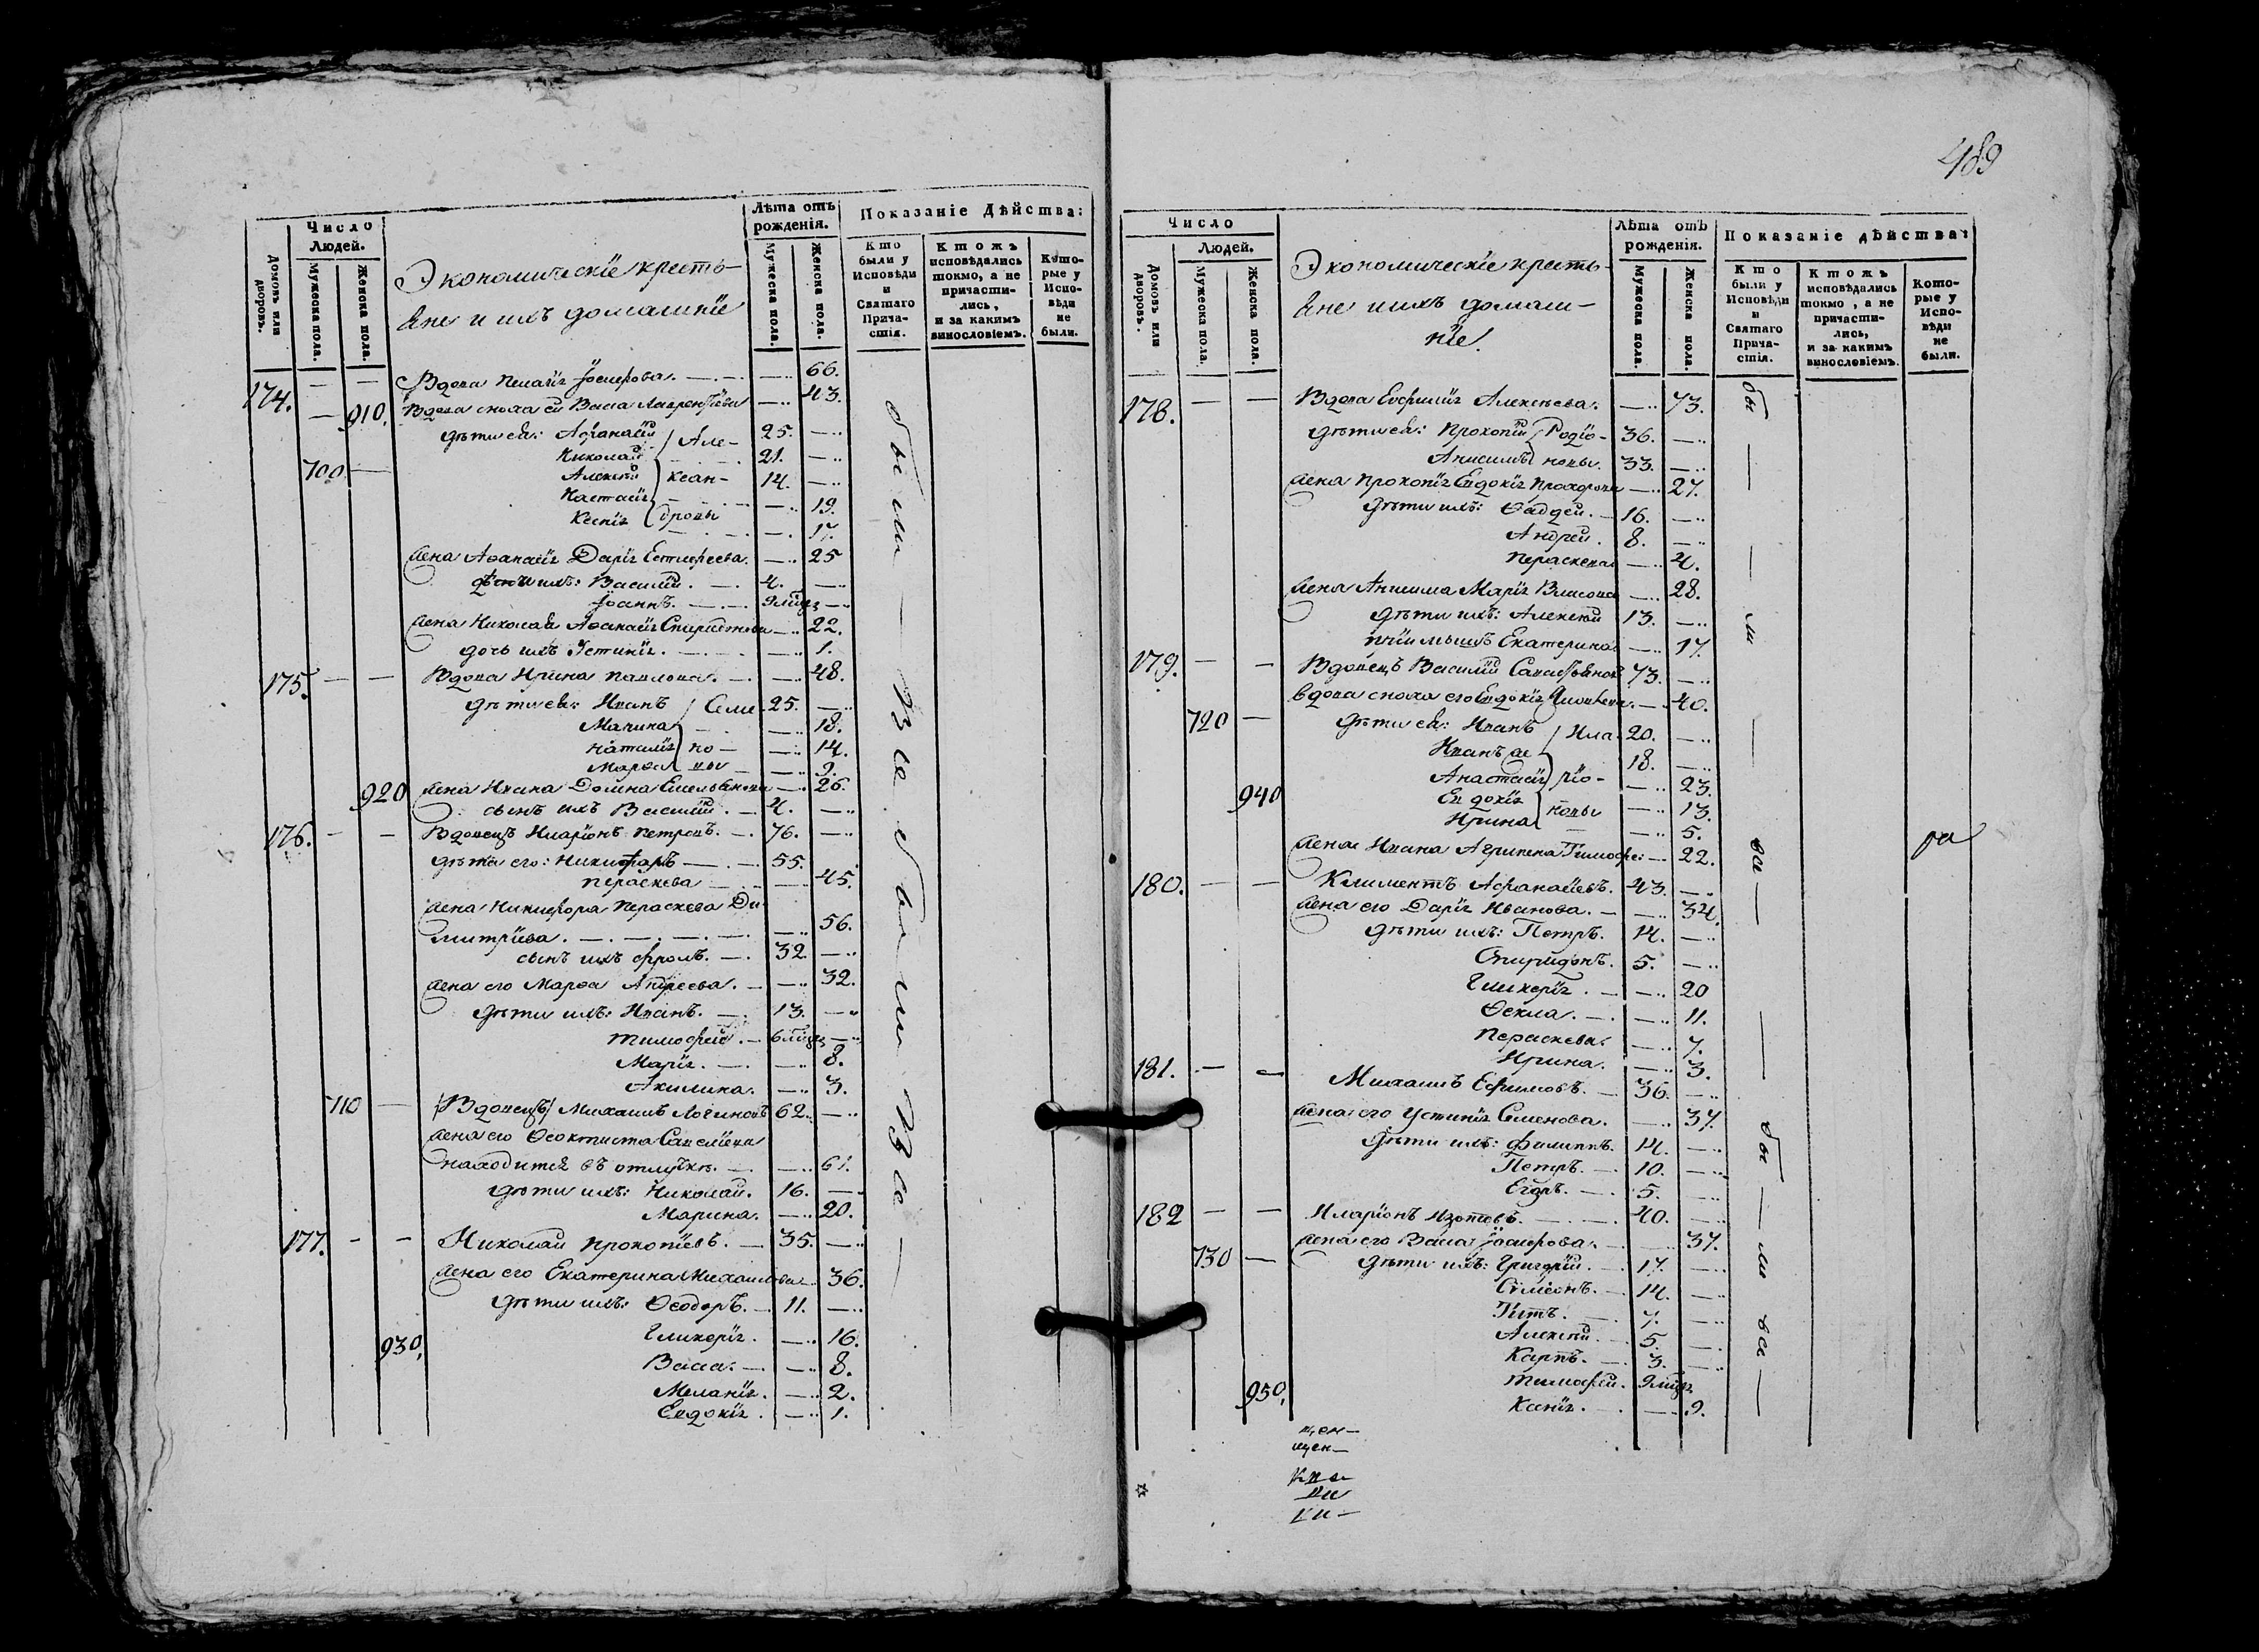 Число
Людей.
Домовъ или дворовъ.
Мужеска пола.
Женска пола.
Экономическіе кресть-
яне и ихъ домашніе
Лѣта отъ рожденія.
Мужеска пола.
Женска пола.
Показаніе Дѣйства:
Кто были у Исповѣди и Святаго Причастія.
Ктожъ исповѣдались токмо, а не причастились, и за какимъ винословіемъ.
Которые у Исповѣди не были.
174. — — Вдова Пелагія Іосифова. — 66.
— 910. Вдова сноха ея Васса Лаврентіева — 43.
дѣти ея: Афанасій Але- 25. —
Николай 21. —
700 — Алексѣй ксан- 14. —
Настасія — 19.
Ксенія дровы — 17.
жена Афанасія Дарія Естифеева. — 25
дѣти ихъ: Василій. — 4. —
Іоаннъ. — 9 мѣсяц —
жена Николая Афанасія Спиридонова — 22.
дочь ихъ Устинія. — 1.
175. — — Вдова Ирина Павлова. — 48.
дѣти ея: Иванъ Семе- 25. —
Марина — 18.
Наталія но- — 14.
Марфа вы — 9.
920 жена Ивана Домна Емельянова — 26.
сынъ ихъ Василій. — 4. —
176. — — Вдовецъ Иларіонъ Петровъ. — 76. —
дѣти его: Никифоръ — 55.
Пераскева — 45.
жена Никифора Пераскева Ди-
митріева. — 56.
сынъ ихъ Фролъ. — 32. —
жена его Марфа Андреева. — 32.
дѣти ихъ: Иванъ. — 13. —
Тимофей. — 6 мѣсяц —
Марія. — 8.
Акилина. — 3.
710 — Вдовецъ Михаилъ Логиновъ 62. —
жена его Феоктиста Савельева
находится въ отлучкѣ. — 61.
дѣти ихъ: Николай. 16. —
Марина. — 20.
177. — — Николай Прокопіевъ. — 35. —
жена его Екатерина Михаилова — 36.
дѣти ихъ: Ѳеодоръ. — 11. —
930. Гликерія. — 16.
Васса. — 8.
Меланія. — 2.
Евдокія. — 1.
были — все были все —
489
Число
Людей.
Домовъ или дворовъ.
Мужеска пола.
Женска пола.
Экономическіе кресть-
яне и ихъ домаш-
ніе.
Лѣта отъ рожденія.
Мужеска пола.
Женска пола.
Показаніе дѣйства:
Кто были у Исповѣди и Святаго Причастія.
Ктожъ исповѣдались токмо, а не причастились, и за какимъ винословіемъ.
Которые у Исповѣди не были.
178. — — Вдова Евфимія Алексѣева. — 73.
дѣти ея: Прокопій Родіо- 36. —
Анисимъ новы. 33. —
жена Прокопія Евдокія Прохорова — 27.
дѣти ихъ: Ѳаддей. — 16. —
Андрей. 8. —
Пераскева — 4.
жена Анисима Марія Власова — 28.
дѣти ихъ: Алексѣй 13. —
Екатерина — 17.
179. — — Вдовецъ Василій Савастьяновъ 73. —
вдова сноха его Евдокія — 40.
720 — дѣти ея: Иванъ Ила- 20. —
Иванъ же 18. —
Анастасія ріо- — 23.
940 Евдокія новы — 13.
Ирина — 5.
жена Ивана Агрипена Тимофе: — 22.
180. — — Климентъ Афанасьевъ. 43. —
жена его Дарія Иванова. — 34.
дѣти ихъ: Петръ. 14. —
Спиридонъ. 5. —
Гликерія. — 20
Ѳекла. — 11.
Пераскева. — 7.
Ирина. — 3.
181. — — Михаилъ Ефимовъ. — 36. —
жена его Устинія Семенова. — 37.
дѣти ихъ: Филиппъ. 14. —
Петръ. — 10. —
Егоръ. — 5. —
182 — — Иларіонъ Изотовъ. — 40. —
жена его Васса Іосифова. — 37.
730 — дѣти ихъ: Григорій. — 17. —
Симеонъ. — 14. —
Титъ. — 7. —
Алексѣй. — 5. —
Карпъ. — 3. —
Тимофей. 9 мѣсяц
950. Ксенія. — 9.
бы — — ли — вси — — бы — ли вси —